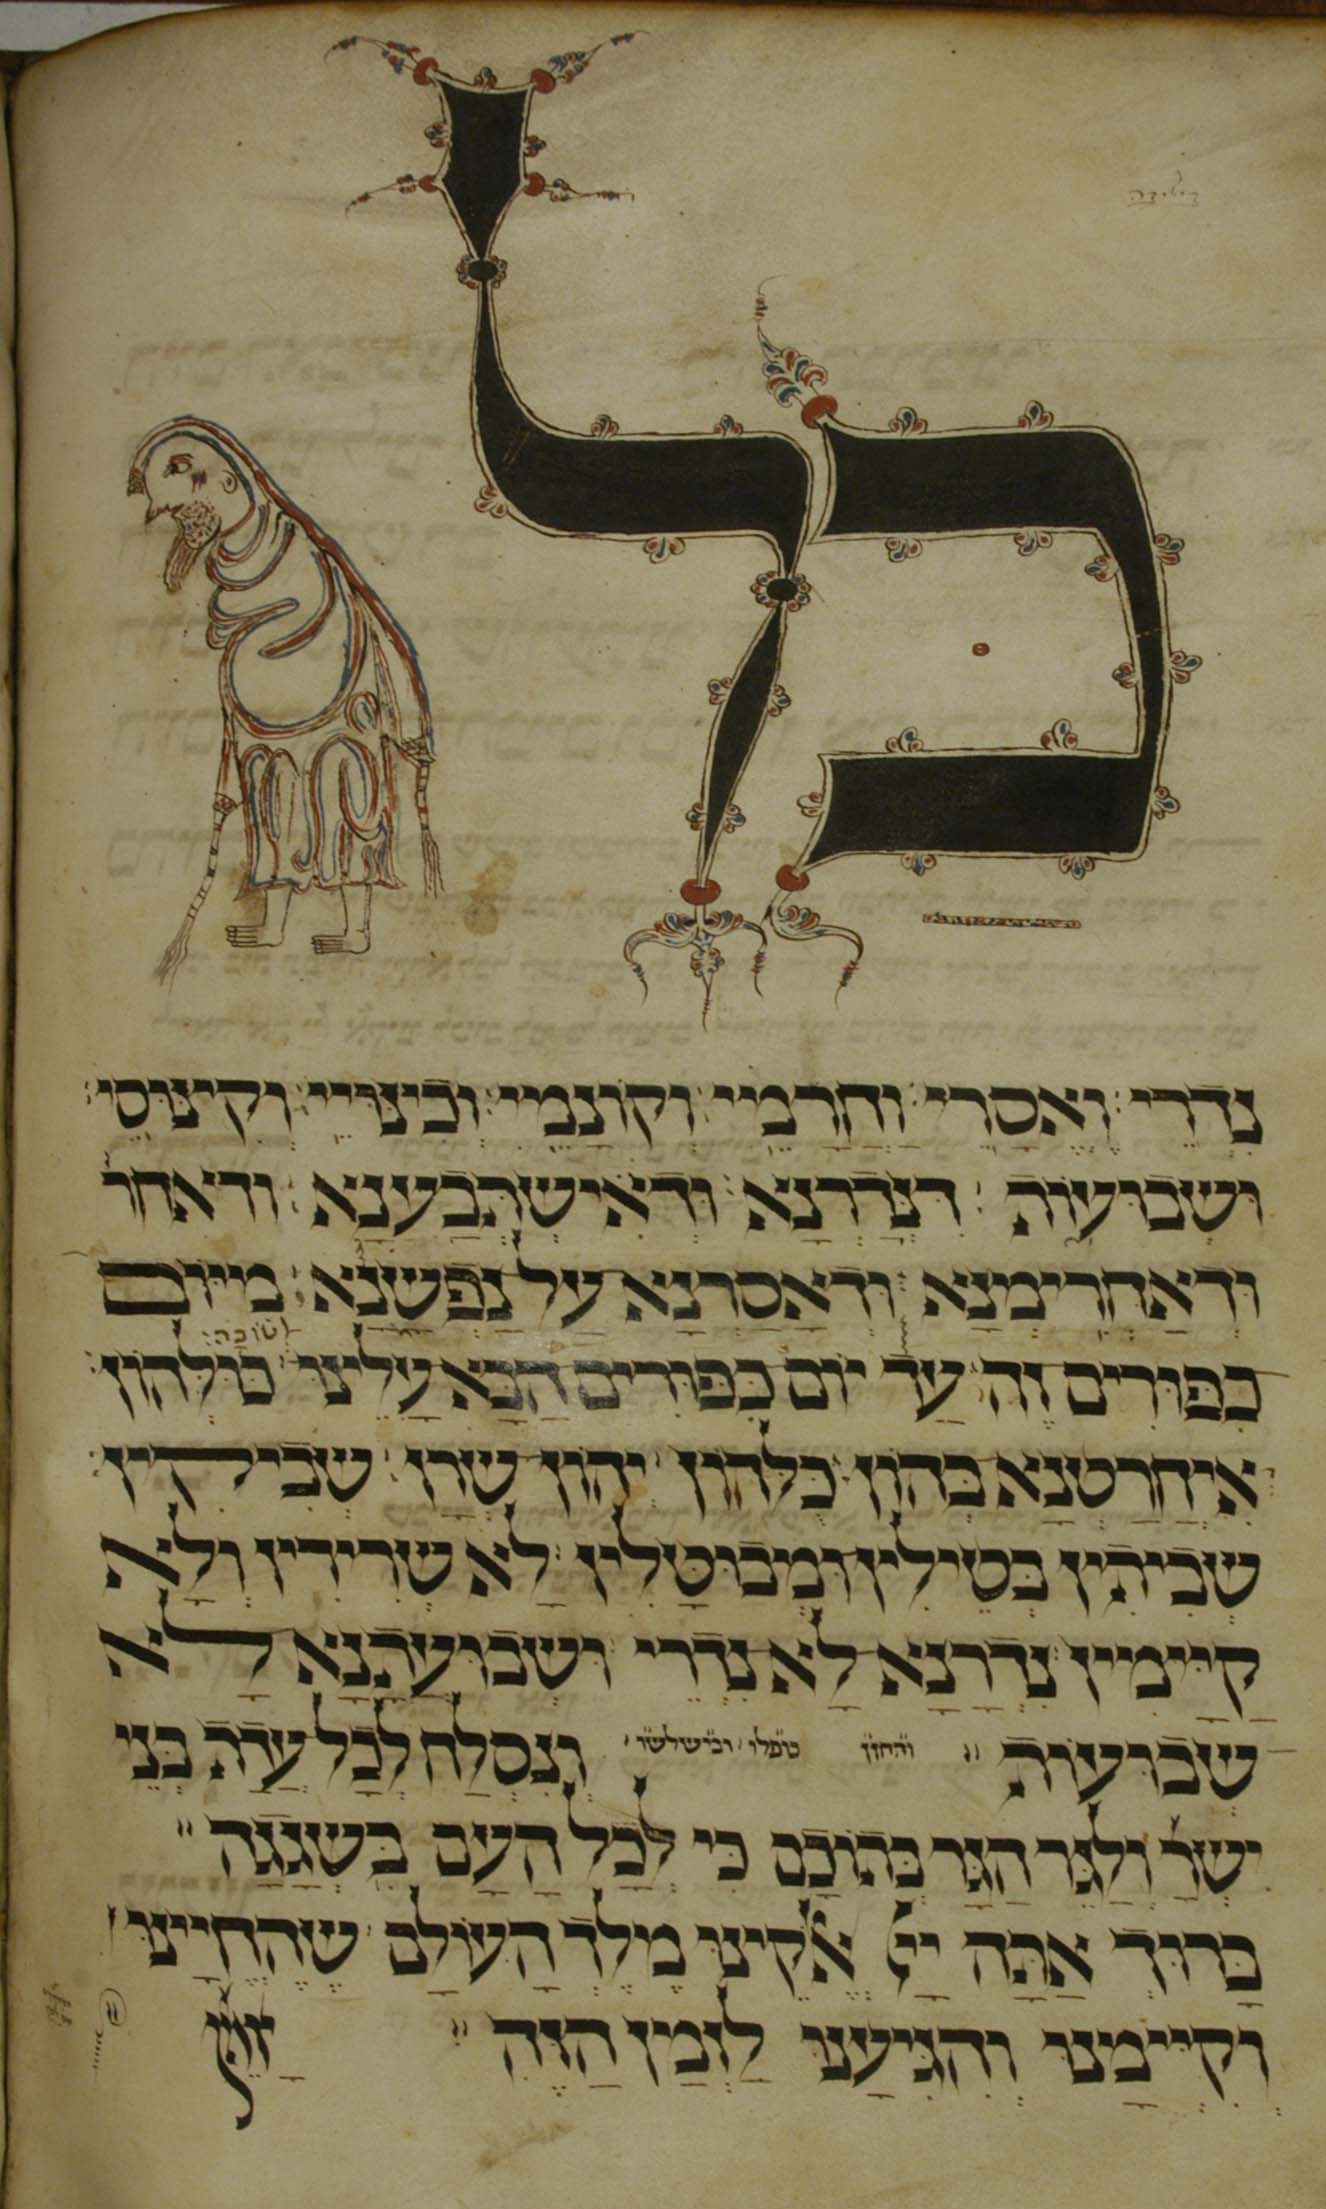 כל
נִדְרֵי וֶאֱסָרֵי וַחֲרָמֵי וְקוֹנָמֵי וְכִינּוּיֵי וְקִינּוּסֵי
וּשְׁבוּעוֹת דִּנְדַרְנָא וּדְאִישְׁתְּבַעְנָא ודאחר
וּדְאַחֲרֵימְנָא וּדְאָסַרְנָא עַל נַפְשָׁנָא מיום
כִּפּוּרִים זֶה עַד יוֹם כִּפּוּרִים הַבָּא עָלֵינוּ כּוּלְּהוֹן
לטובה
אִיחֲרַטְנָא בְּהוֹן כּוּלְּהוֹן יְהוֹן שָׁרָן שְׁבִיקִין
שְׁבִיתִין בְּטֵילִין וּמְבוּטָּלִין לָא שְׁרִירִין וְלָא
קַיָּימִין נִדְרָנָא לָא נִדְרֵי וּשְׁבוּעָתָנָא לָא
שְׁבוּעוֹת והחזן כופלו ומשלשו וְנִסְלַח לְכָל עֲדַת בְּנֵי
יִשְׂרָ וְלַגֵּר הַגָּר בְּתוֹכָם כִּי לְכָל הָעָם בִּשְׁגָגָה
בָּרוּךְ אַתָּה יי אֱלֹקֵינוּ מֶלֶךְ הָעוֹלָם שֶׁהֶחֱיָינוּ
וְקִיְּימָנוּ וְהִגִּיעָנוּ לַזְּמַן הַזֶּה